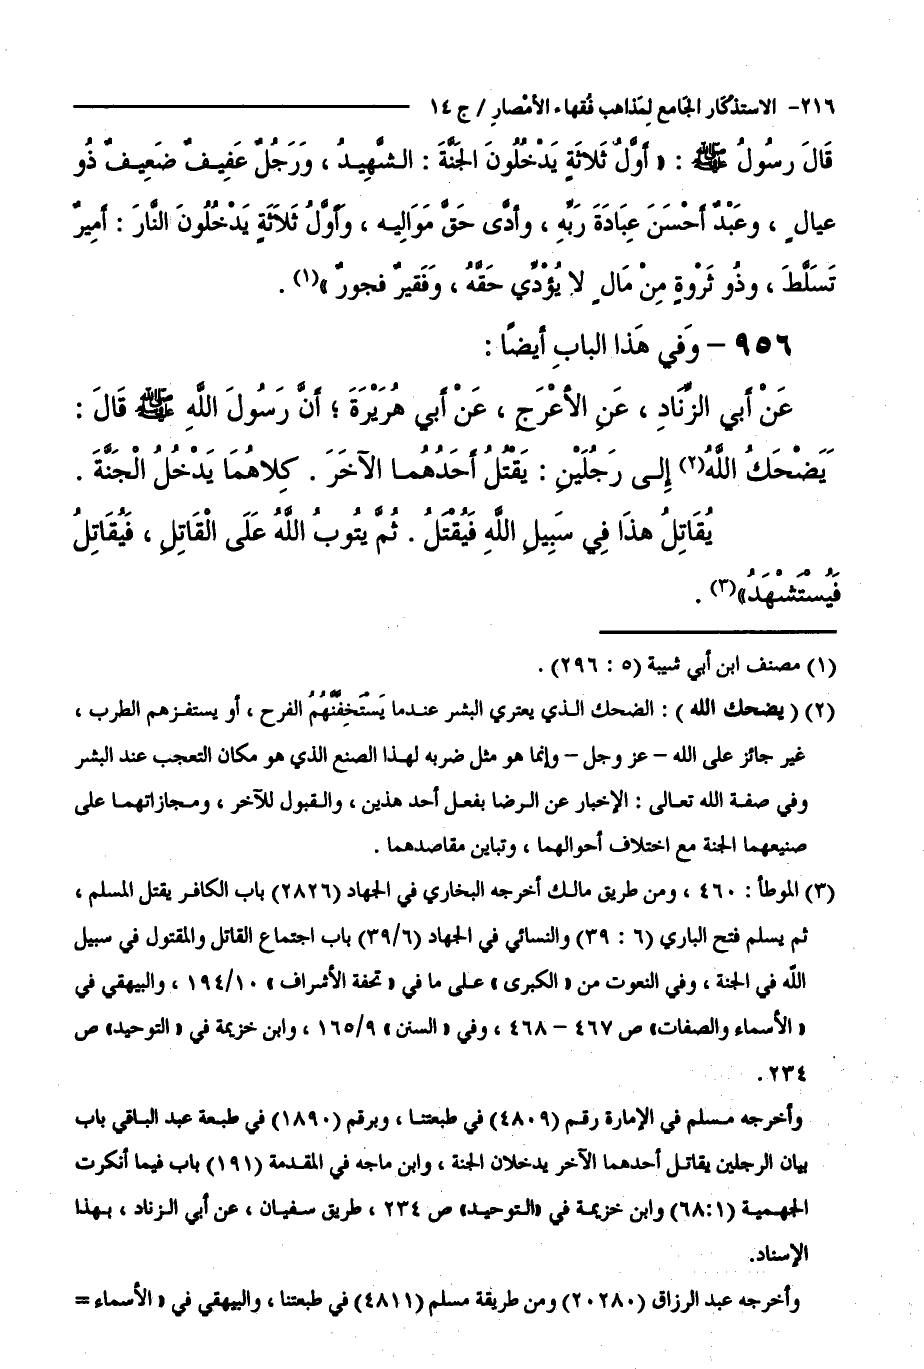 ٢١٦- الاستذكار الجامع لمذاهب فقهاء الأمصار / ج ١٤
قَالَ رسُولُ ﷺ : « أَوَّلُ ثَلاثَةٍ يَدْخُلُونَ الجَنَّةَ : الشَّهِيدُ ، وَرَجُلٌ عَفِيفٌ ضَعِيفٌ ذُو
عيالٍ ، وعَبْدٌ أحْسَنَ عِبَادَةَ رَبِّهِ ، وأدَّى حَقَّ مَوَالِيه ، وأوَّلُ ثَلاثَةٍ يَدْخُلُونَ النَّارَ : أمِيرٌ
تَسَلَّطَ ، وذُو ثَرْوةٍ مِنْ مَالٍ لا يُؤْدِّي حَقَّهُ ، وَفَقِيرٌ فجورٌ »(١) .
٩٥٦ – وَفي هَذا البابِ أيضًا :
عَنْ أبي الزِّنَادِ ، عَنِ الأعْرَجِ ، عَنْ أبي هُرَيْرَةَ ؛ أنَّ رَسُولَ اللَّهِ ﷺ قَالَ :
يَضْحَكُ اللَّهُ(٢) إلى رَجُلَيْنِ : يَقْتُلُ أحَدُهُما الآخَرَ . كِلاهُمَا يَدْخُلُ الْجَنَّةَ .
يُقَاتِلُ هذَا فِي سَبِيلِ اللَّهِ فَيُقْتَلُ . ثُمَّ يتُوبُ اللَّهُ عَلَى الْقَاتِلِ ، فَيُقَاتِلُ
فَيُسْتَشْهَدُ»(٣) .
(١) مصنف ابن أبي شيبة (٥ : ٢٩٦) .
(٢) ( يضحك الله ) : الضحك الذي يعتري البشر عندما يَسْتَخِفَّنَّهُمُ الفرح ، أو يستفزهم الطرب ،
غير جائز على الله – عز وجل – وإنما هو مثل ضربه لهذا الصنع الذي هو مكان التعجب عند البشر
وفي صفة الله تعالى : الإخبار عن الرضا بفعل أحد هذين ، والقبول للآخر ، ومجازاتهما على
صنيعهما الجنة مع اختلاف أحوالهما ، وتباين مقاصدهما .
(٣) الموطأ : ٤٦٠ ، ومن طريق مالك أخرجه البخاري في الجهاد (٢٨٢٦) باب الكافر يقتل المسلم ،
ثم يسلم فتح الباري (٦ : ٣٩) والنسائي في الجهاد (٣٩/٦) باب اجتماع القاتل والمقتول في سبيل
الله في الجنة ، وفي النعوت من « الكبرى » على ما في « تحفة الأشراف » ١٩٤/١٠ ، والبيهقي في
« الأسماء والصفات» ص ٤٦٧ – ٤٦٨ ، وفي « السنن » ١٦٥/٩ ، وابن خزيمة في « التوحيد» ص
٢٣٤ .
وأخرجه مسلم في الإمارة رقم (٤٨٠٩) في طبعتنا ، وبرقم (١٨٩٠) في طبعة عبد الباقي باب
بيان الرجلين يقاتل أحدهما الآخر يدخلان الجنة ، وابن ماجه في المقدمة (١٩١) باب فيما أنكرت
الجهمية (٦٨:١) وابن خزيمة في «التوحيد» ص ٢٣٤ ، طريق سفيان ، عن أبي الزناد ، بهذا
الإسناد.
وأخرجه عبد الرزاق (٢٠٢٨٠) ومن طريقة مسلم (٤٨١١) في طبعتنا ، والبيهقي في « الأسماء =